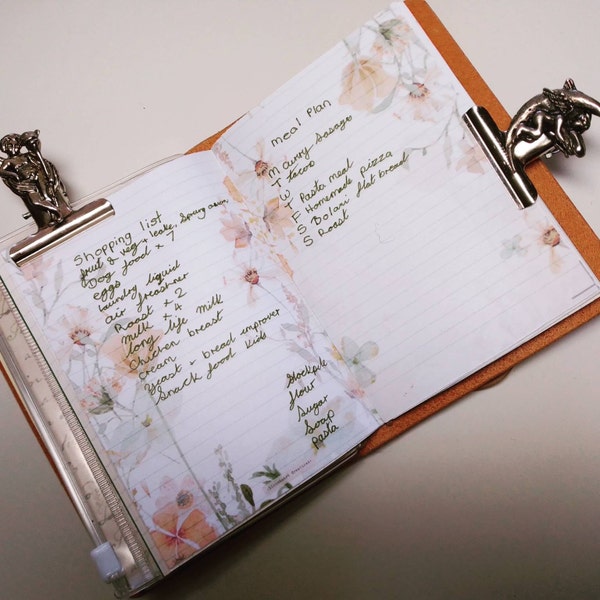 Shopping list
fruit & veg, Spring onion
Dog food x 7
eggs
laundry liquid
air freshner
Roast x 2
Milk x 4
long life milk
Chicken breast
cream
Yeast + bread improver
Snack food kids
Stockpile
flour
Sugar
Soap
pasta
meal plan
M Curry Sosages
T tacos
W
T Pasta meal
F Homemade pizza
S flat bread
S Roast